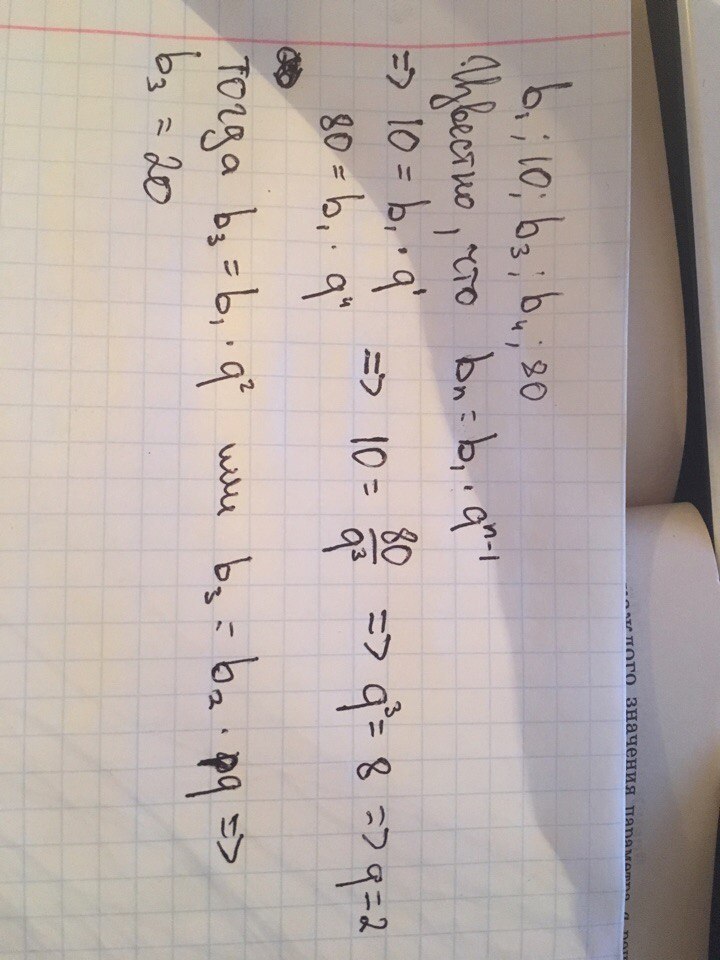 b₁; 10; b₃; b₄; 80
Известно, что bₙ = b₁ · qⁿ⁻¹
=> 10 = b₁ · q¹
80 = b₁ · q⁴ => 10 = 80/q³ => q³ = 8 => q = 2
тогда b₃ = b₁ · q² или b₃ = b₂ · q =>
b₃ = 20
значения параметра